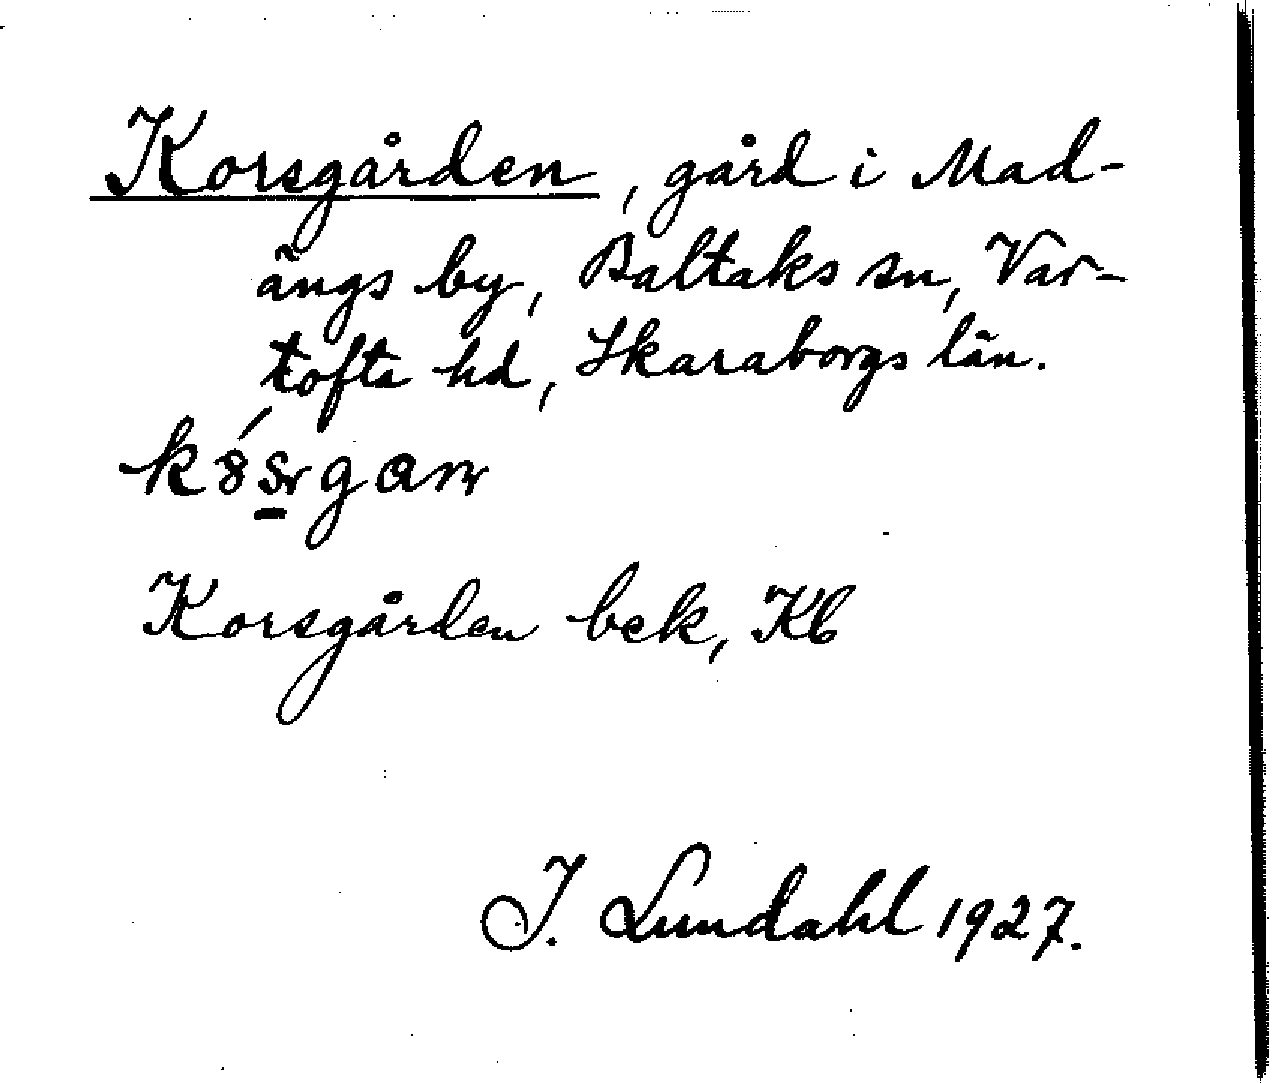 Korsgården, gård i Mad-
ängs by, Baltaks sn, Var-
tofta hd, Skaraborgs län.
Korsgården bek, Kb
I. Lundahl 1927.